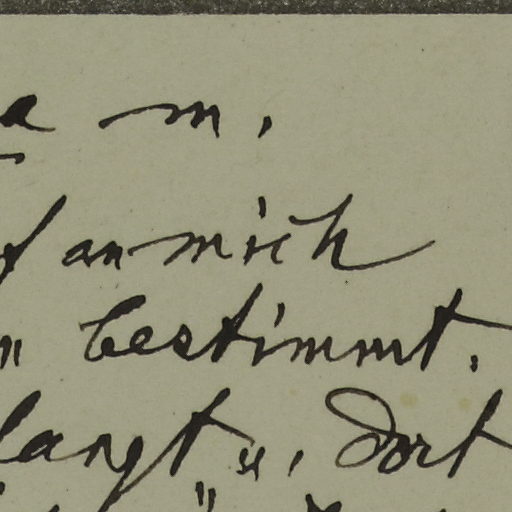 a m,
an mich
bestimmt.
langt u, dort